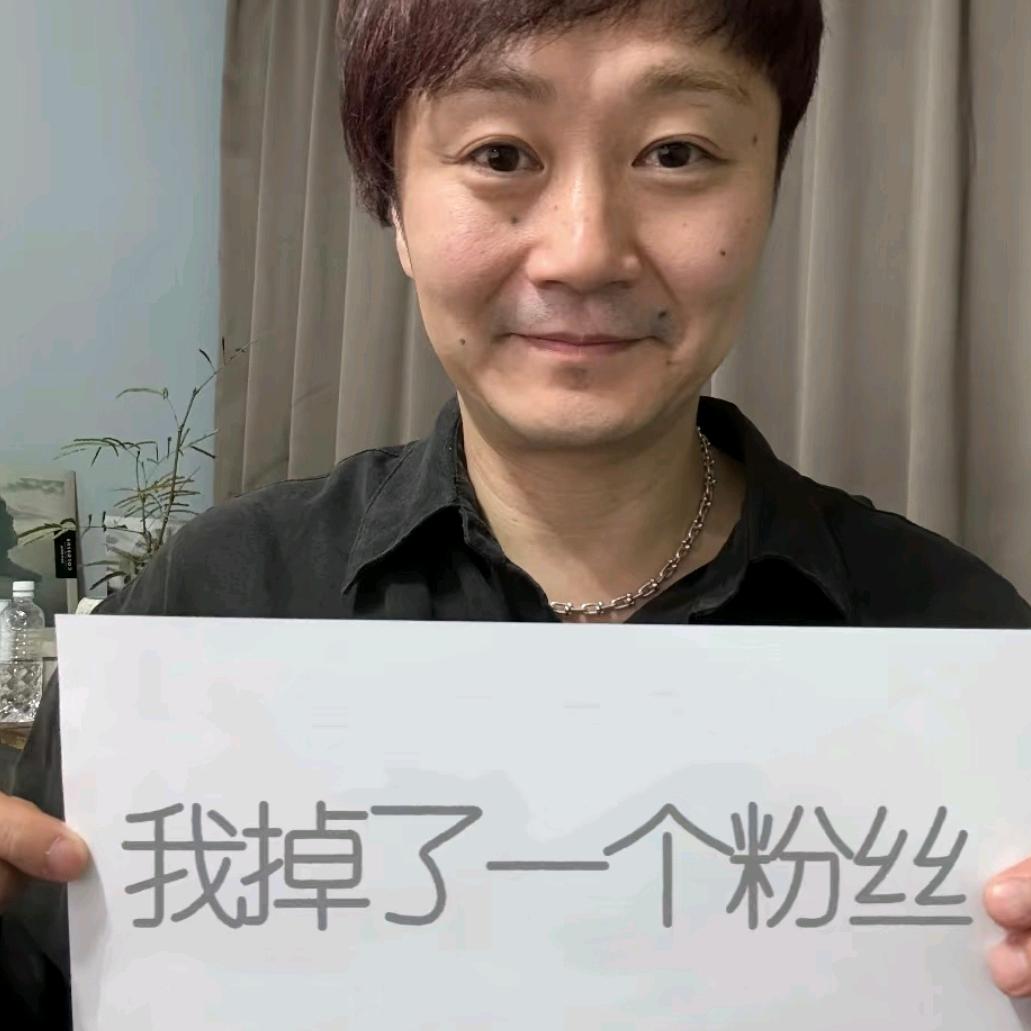 我掉了一个粉丝